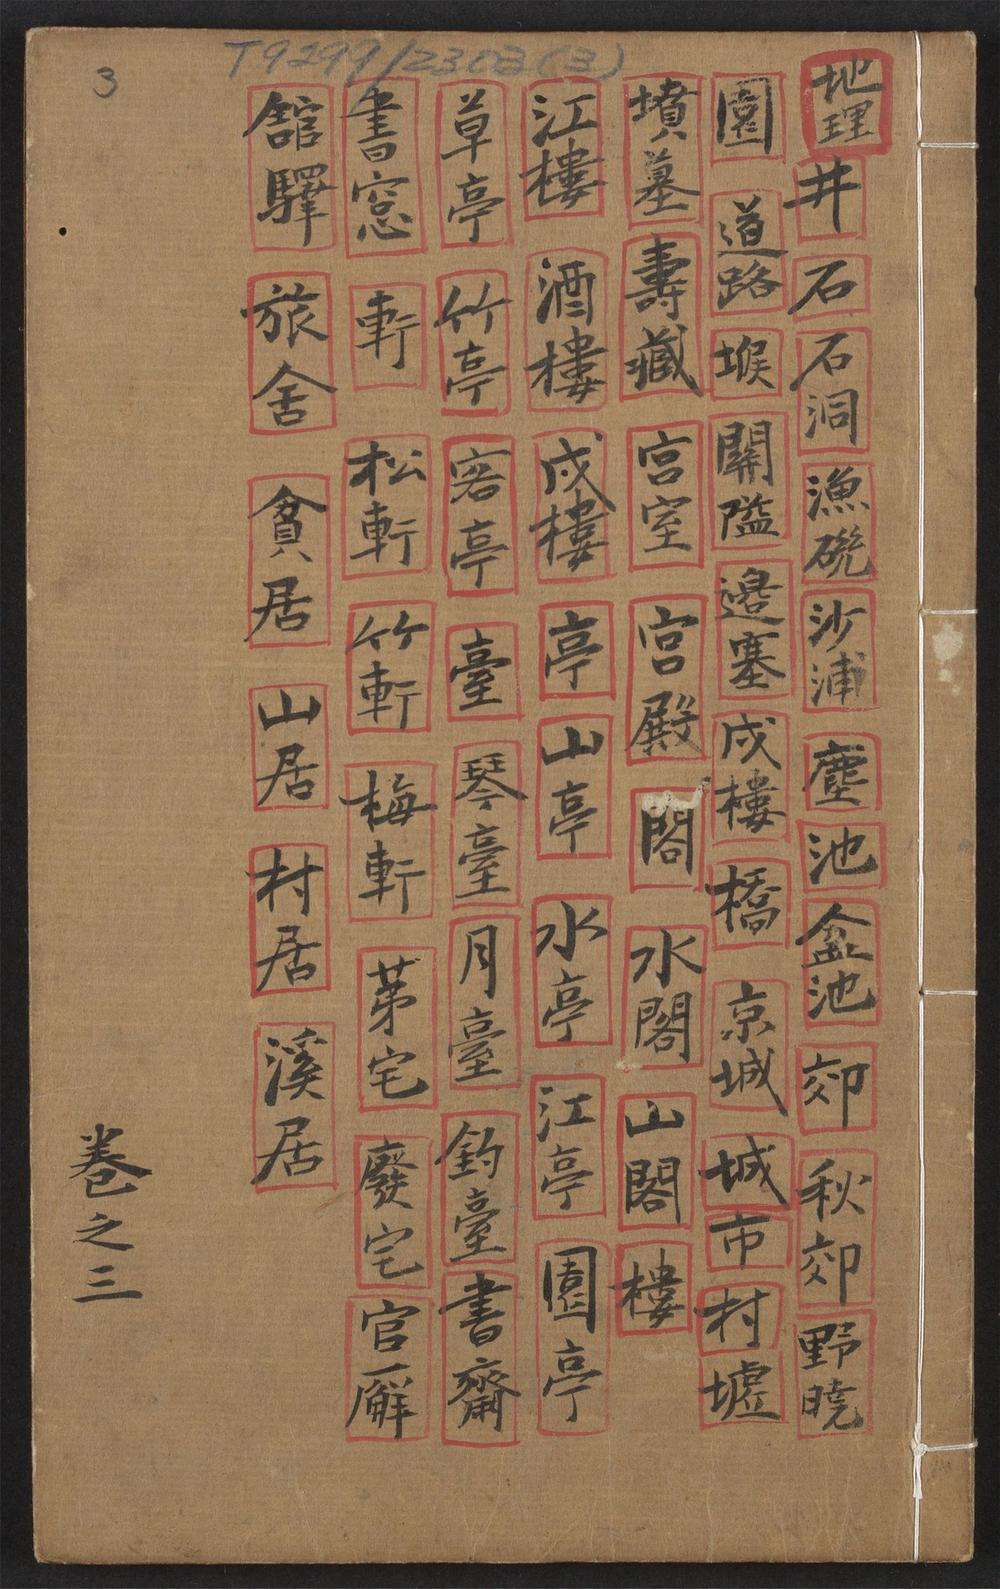 T9299/2302(3)
3
地理 井 石 石洞 漁磯 沙浦 塵 池 盆池 郊 秋郊 野曉
園 道路 堠 關隘 邉塞 戍樓 橋 京城 城市 村墟
墳墓 壽藏 宫室 宫殿 閣 水閣 山閣 樓
江樓 酒樓 戍樓 亭 山亭 水亭 江亭 園亭
草亭 竹亭 客亭 臺 琴臺 月臺 釣臺 書齋
書窓 軒 松軒 竹軒 梅軒 茅宅 廢宅 官廨
舘驛 旅舍 貧居 山居 村居 溪居
卷之三